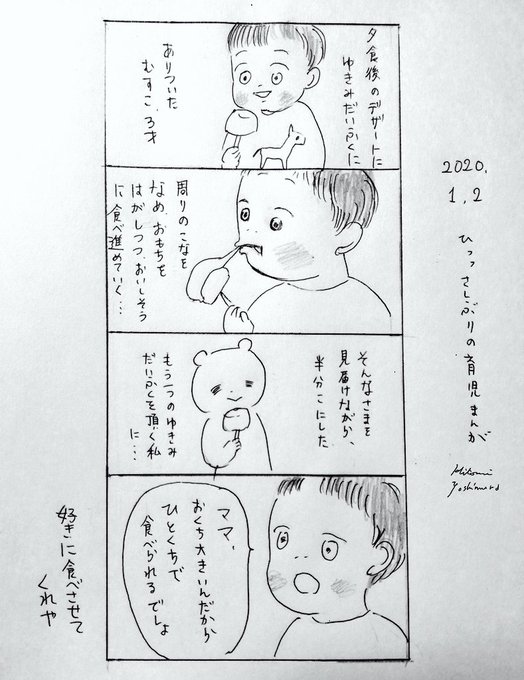 2020.
1,2
ひっっさしぶりの育児まんが
Hitomi
Yoshimura
夕食後のデザートに
ゆきみだいふくに
ありついた
むすこ、3才
周りのこなを
なめ、おもちを
はがしつつ、おいしそう
に食べ進めていく…
そんなさまを
見届けながら、
半分こにした
もう一つのゆきみ
だいふくを頂く私
に…
ママ、
おくち大きいんだから
ひとくちで
食べられるでしょ
好きに食べさせて
くれや